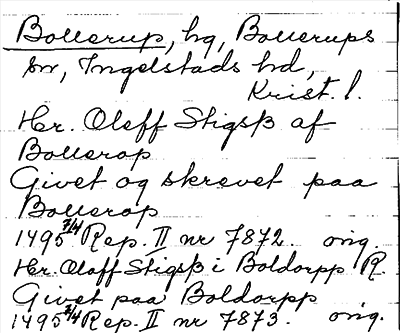 Bollerup, hg, Bollerups
sn, Ingelstads hd,
Krist. l.
Hr. Oleff Stigsß af
Bollerop
Givet og skrevet paa
Bollerop
1495 7/4 Rep. II nr 7872. orig.
Hr. Oloff Stigsß i Boldorpp R.
Givet paa Boldorpp
1495 7/4 Rep. II nr 7873. orig.